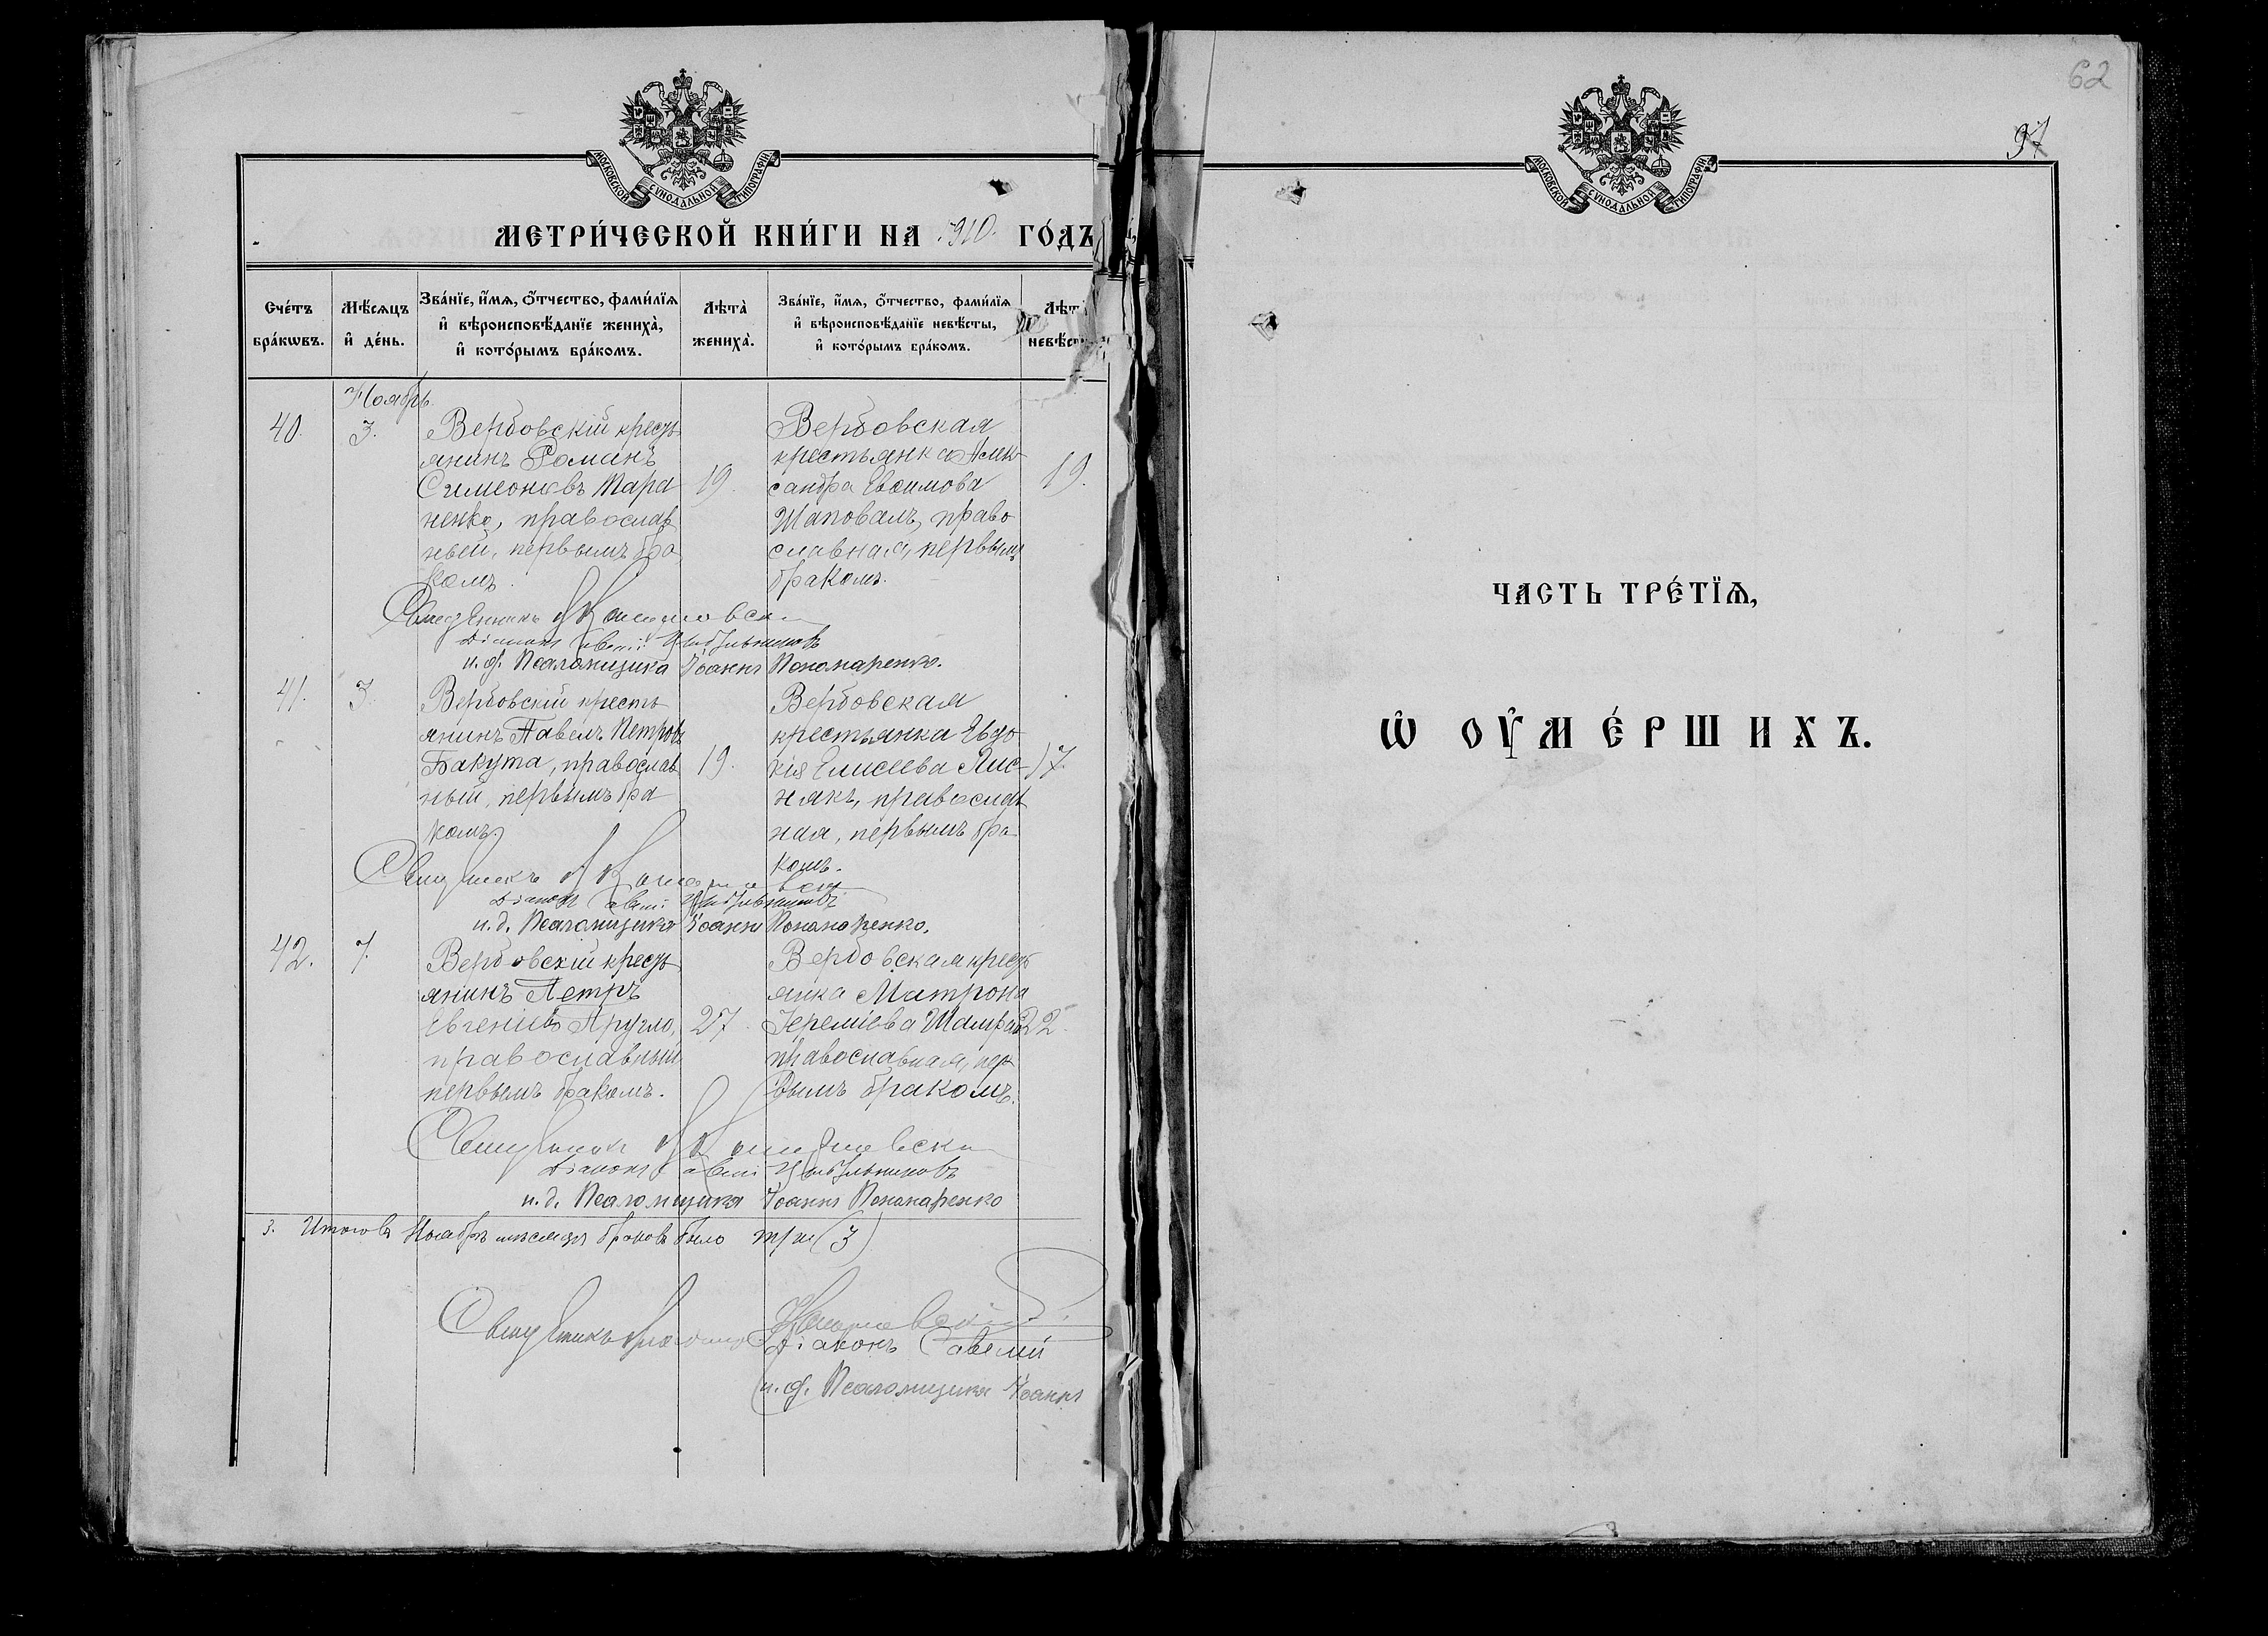 МОСКОВСКОЙ СѴНОДАЛЬНОЙ ТИПОГРАФІИ
МЕТРИ́ЧЕСКОЙ КНИ́ГИ НА 1910. ГО́ДЪ
Сче́тъ бра́кѡвъ.
Мѣ́сѧцъ и҆ де́нь.
Зва́нїе, и҆́мѧ, ѻ҆́тчество, фами́лїѧ и҆ вѣроисповѣ́данїе жениха̀, и҆ кото́рымъ бра́комъ.
Лѣта̀ жениха̀.
Зва́нїе, и҆́мѧ, ѻ҆́тчество, фами́лїѧ и҆ вѣроисповѣ́данїе невѣ́сты, и҆ кото́рымъ бра́комъ.
Лѣт невѣ́ст
Ноябрь
40. 3.
Вербовскій кресть
янинъ Романъ
Симеоновъ Мара
ненко, православ
ный, первымъ бра
комъ.
19.
Вербовская
крестьянка Алек
сандра Евѳимова
Шаповалъ, право
славная, первымъ
бракомъ.
19.
Священникъ
Діаконъ
и. д. Псаломщика Іоаннъ Пономаренко.
41. 3.
Вербовскій кресть
янинъ Павелъ Петровъ
Бакута, православ
ный, первымъ бра
комъ.
19.
Вербовская
крестьянка Евдо
кія Елисеева Лис-
някъ, православ
ная, первымъ бра
комъ.
17.
Священникъ
Діаконъ
и. д. Псаломщика Іоаннъ Пономаренко.
42. 7.
Вербовскій кресть
янинъ Петръ
Евгеніевъ Пругло,
православный
первымъ бракомъ.
27.
Вербовская кресть
янка Матрона
Іереміева
православная, пер
вымъ бракомъ.
22.
Священникъ
Діаконъ
и. д. Псаломщика Іоаннъ Пономаренко
3. Итого въ Ноябрѣ мѣсяцѣ браковъ было три (3)
Священникъ
Діаконъ Савелій
и. д. Псаломщика Іоаннъ
62
97
МОСКОВСКОЙ СѴНОДАЛЬНОЙ ТИПОГРАФІИ
ЧАСТЬ ТРЕ́ТЇѦ,
Ѡ҆ ОУ҆МЕ́РШИХЪ.